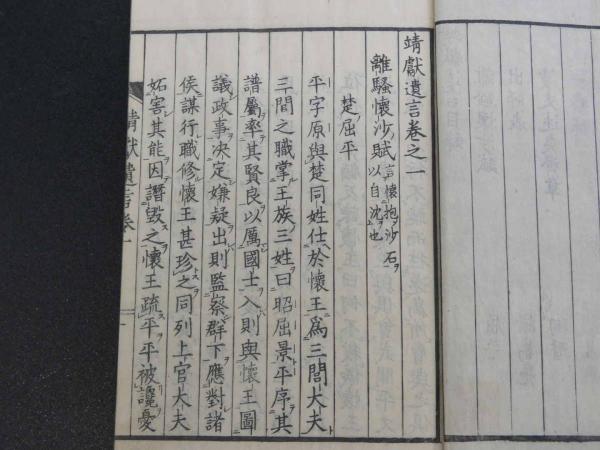 靖獻遺言卷之一
離騷懷沙賦 言懷抱沙石
以自沈也
楚屈平
平字原與楚同姓仕於懷王爲三閭大夫
三閭之職掌王族三姓曰昭屈景平序其
譜屬率其賢良以厲國士入則與懷王圖
議政事决定嫌疑出則監察群下應對諸
侯謀行職修懷王甚珍之同列上官大夫
妬害其能因譖毀之懷王疏平平被讒憂
靖獻遺言卷一